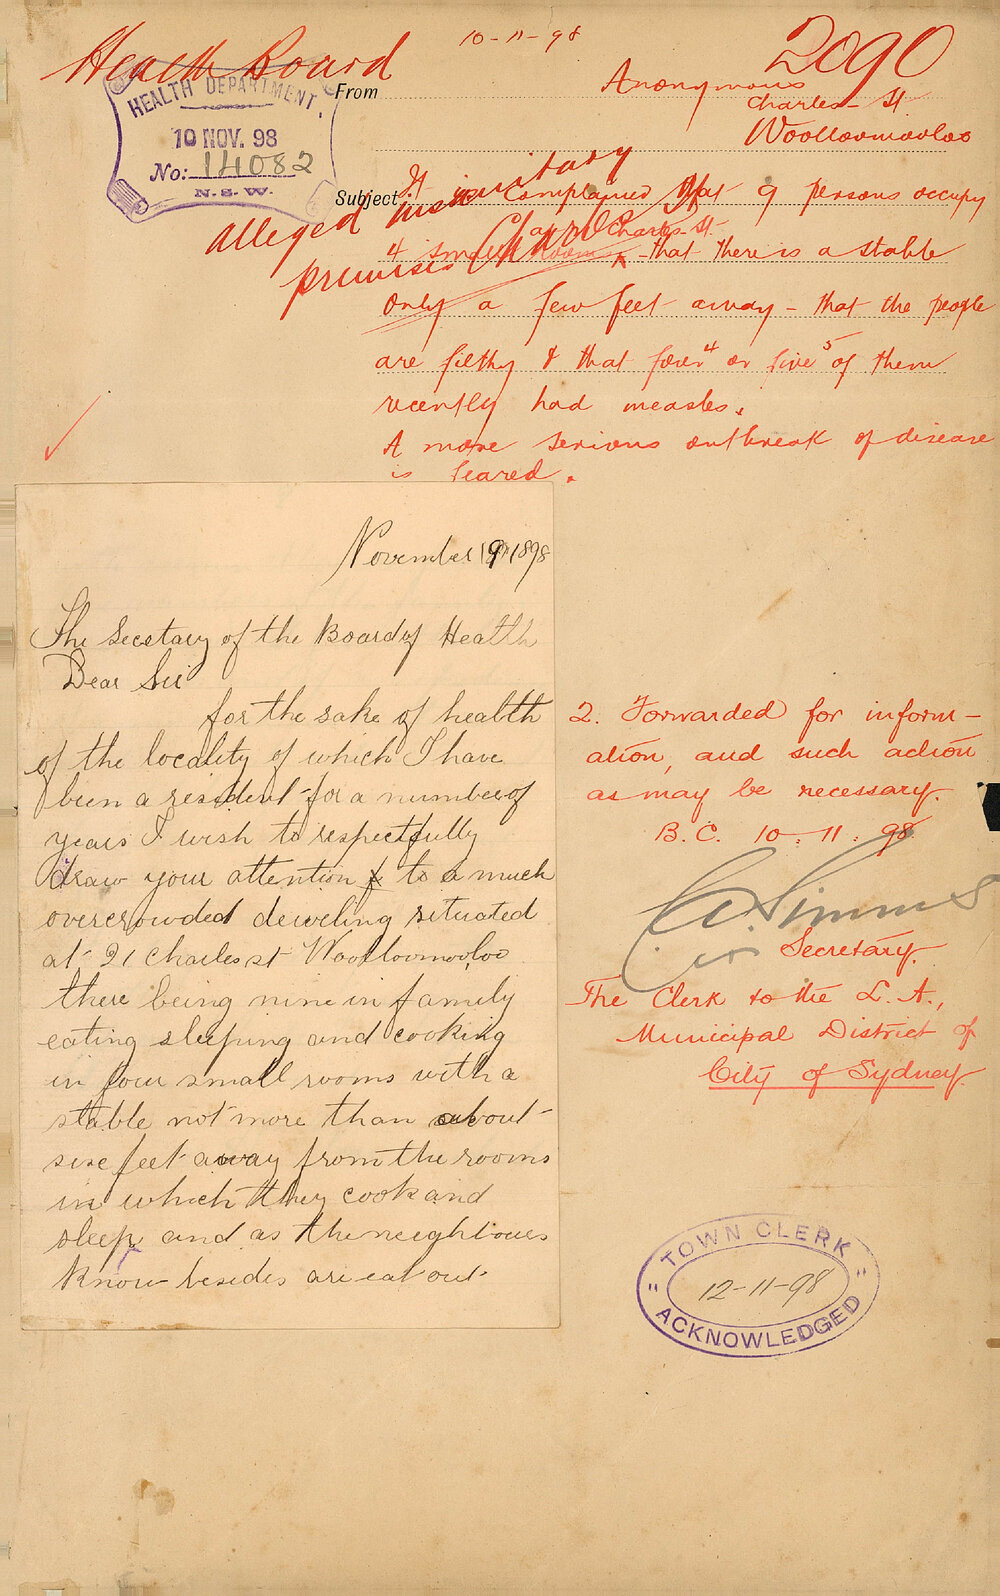 Health Board
10-11-98
2090
HEALTH DEPARTMENT.
10 NOV. 98
No: 14082
N.S.W.
From
Anonymous
Charles St
Woolloomooloo
Subject
alleged insanitary
premises Charles St
It is complained that 9 persons occupy
4 small rooms at Charles St - that there is a stable
only a few feet away - that the people
are filthy & that four 4 or five 5 of them
recently had measles.
A more serious outbreak of disease
is feared.
November 9 1898
The Secetary of the Board of Health
Dear Sir
for the sake of health
of the locality of which I have
been a resident for a number of
years I wish to respectfully
draw your attention to a much
overcrowded deweling situated
at 21 Charles st Woolloomooloo
there being nine in family
eating sleeping and cooking
in four small rooms with a
stable not more than about
sixe feet away from the rooms
in which they cook and
sleep and as the neighbours
know besides are eat out
2. Forwarded for inform-
ation, and such action
as may be necessary.
B.C. 10.11.98
Simms
Secretary.
The Clerk to the L.A.,
Municipal District of
City of Sydney.
TOWN CLERK
12-11-98
ACKNOWLEDGED